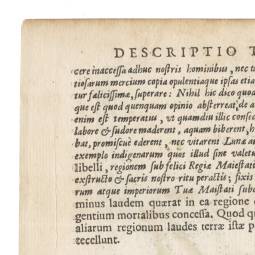 DESCRIPTIO T
cere inaccessa adhuc nostris hominibus, nec t
tiosarum mercium copia opulentiaque ipsas etia
tur fælicissimæ, superare: Nihil hic dico quod
que est quod quenquam opinio absterreat, de a
enim est temperatus, vt quamdiu illic consic
labore & sudore maderent, aquam biberent, h
bas, promiscuè ederent, nec vitarent Lunæ au
exemplo indigenarum quis illud sine valetu
libelli, regionem sub felici Regie Maiestati
exstructo & sacris nostro ritu peractis; fixis
rum atque imperiorum Tuæ Maiestati subd
minus laudem quærat in ea regione e
gentium mortalibus concessa. Quod qu
aliarum regionum laudes terræ istæ p
tecellunt.